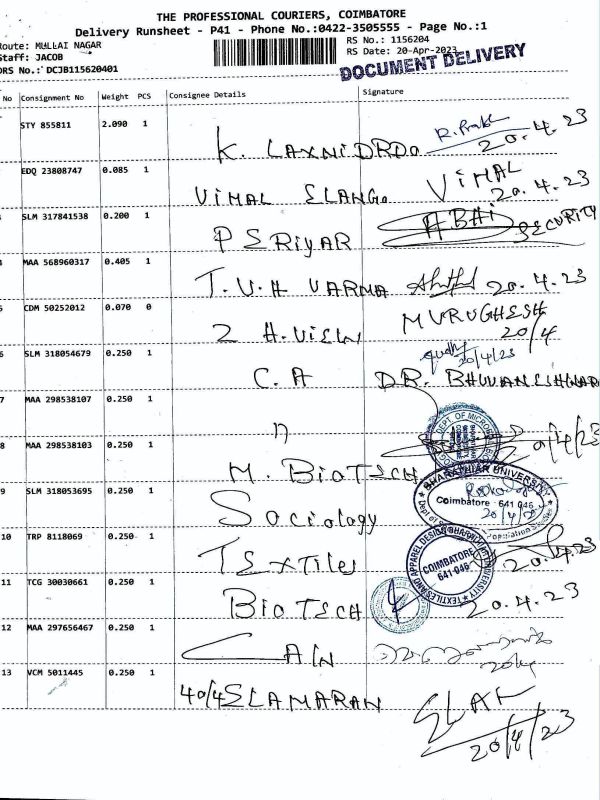 THE PROFESSIONAL COURIERS, COIMBATORE
Delivery Runsheet - P41 - Phone No.:0422-3505555 - Page No.:1
Route: MULLAI NAGAR
Staff: JACOB
DRS No.: DCJB115620401
RS No.: 1156204
RS Date: 20-Apr-2023
DOCUMENT DELIVERY
No Consignment No Weight PCS Consignee Details Signature
STY 855811 2.090 1
K. LAXNIDRDO 20.4.23
EDQ 23808747 0.085 1
VIMAL ELANGo VIMAL 20.4.23
SLM 317841538 0.200 1
PERIYAR ABHI SECURITY
MAA 568960317 0.405 1
T.V.H VARMA 20.4.23
5 CDM 50252012 0.070 0
2 H.VIEW MURUGHESH 20/4
6 SLM 318054679 0.250 1
20/4/23
C.A DR. BHUVANESHWAR
7 MAA 298538107 0.250 1
n
DEPT. OF MICROB
8 MAA 298538103 0.250 1
20/4/23
M. BIOTECH
9 SLM 318053695 0.250 1
Sociology
BHARATHIAR UNIVERSITY
Coimbatore - 641 046
20/4/23
Population Studies
10 TRP 8118069 0.250 1
TEXTiles 20.4.23
TEXTILES AND APPAREL DESIGN BHARATHIAR UNIVERSITY
COIMBATORE
641-046
11 TCG 30030661 0.250 1
BIOTECH 20.4.23
12 MAA 297656467 0.250 1
20/4
13 VCM 5011445 0.250 1
40/4 ELAMARAN
20/4/23